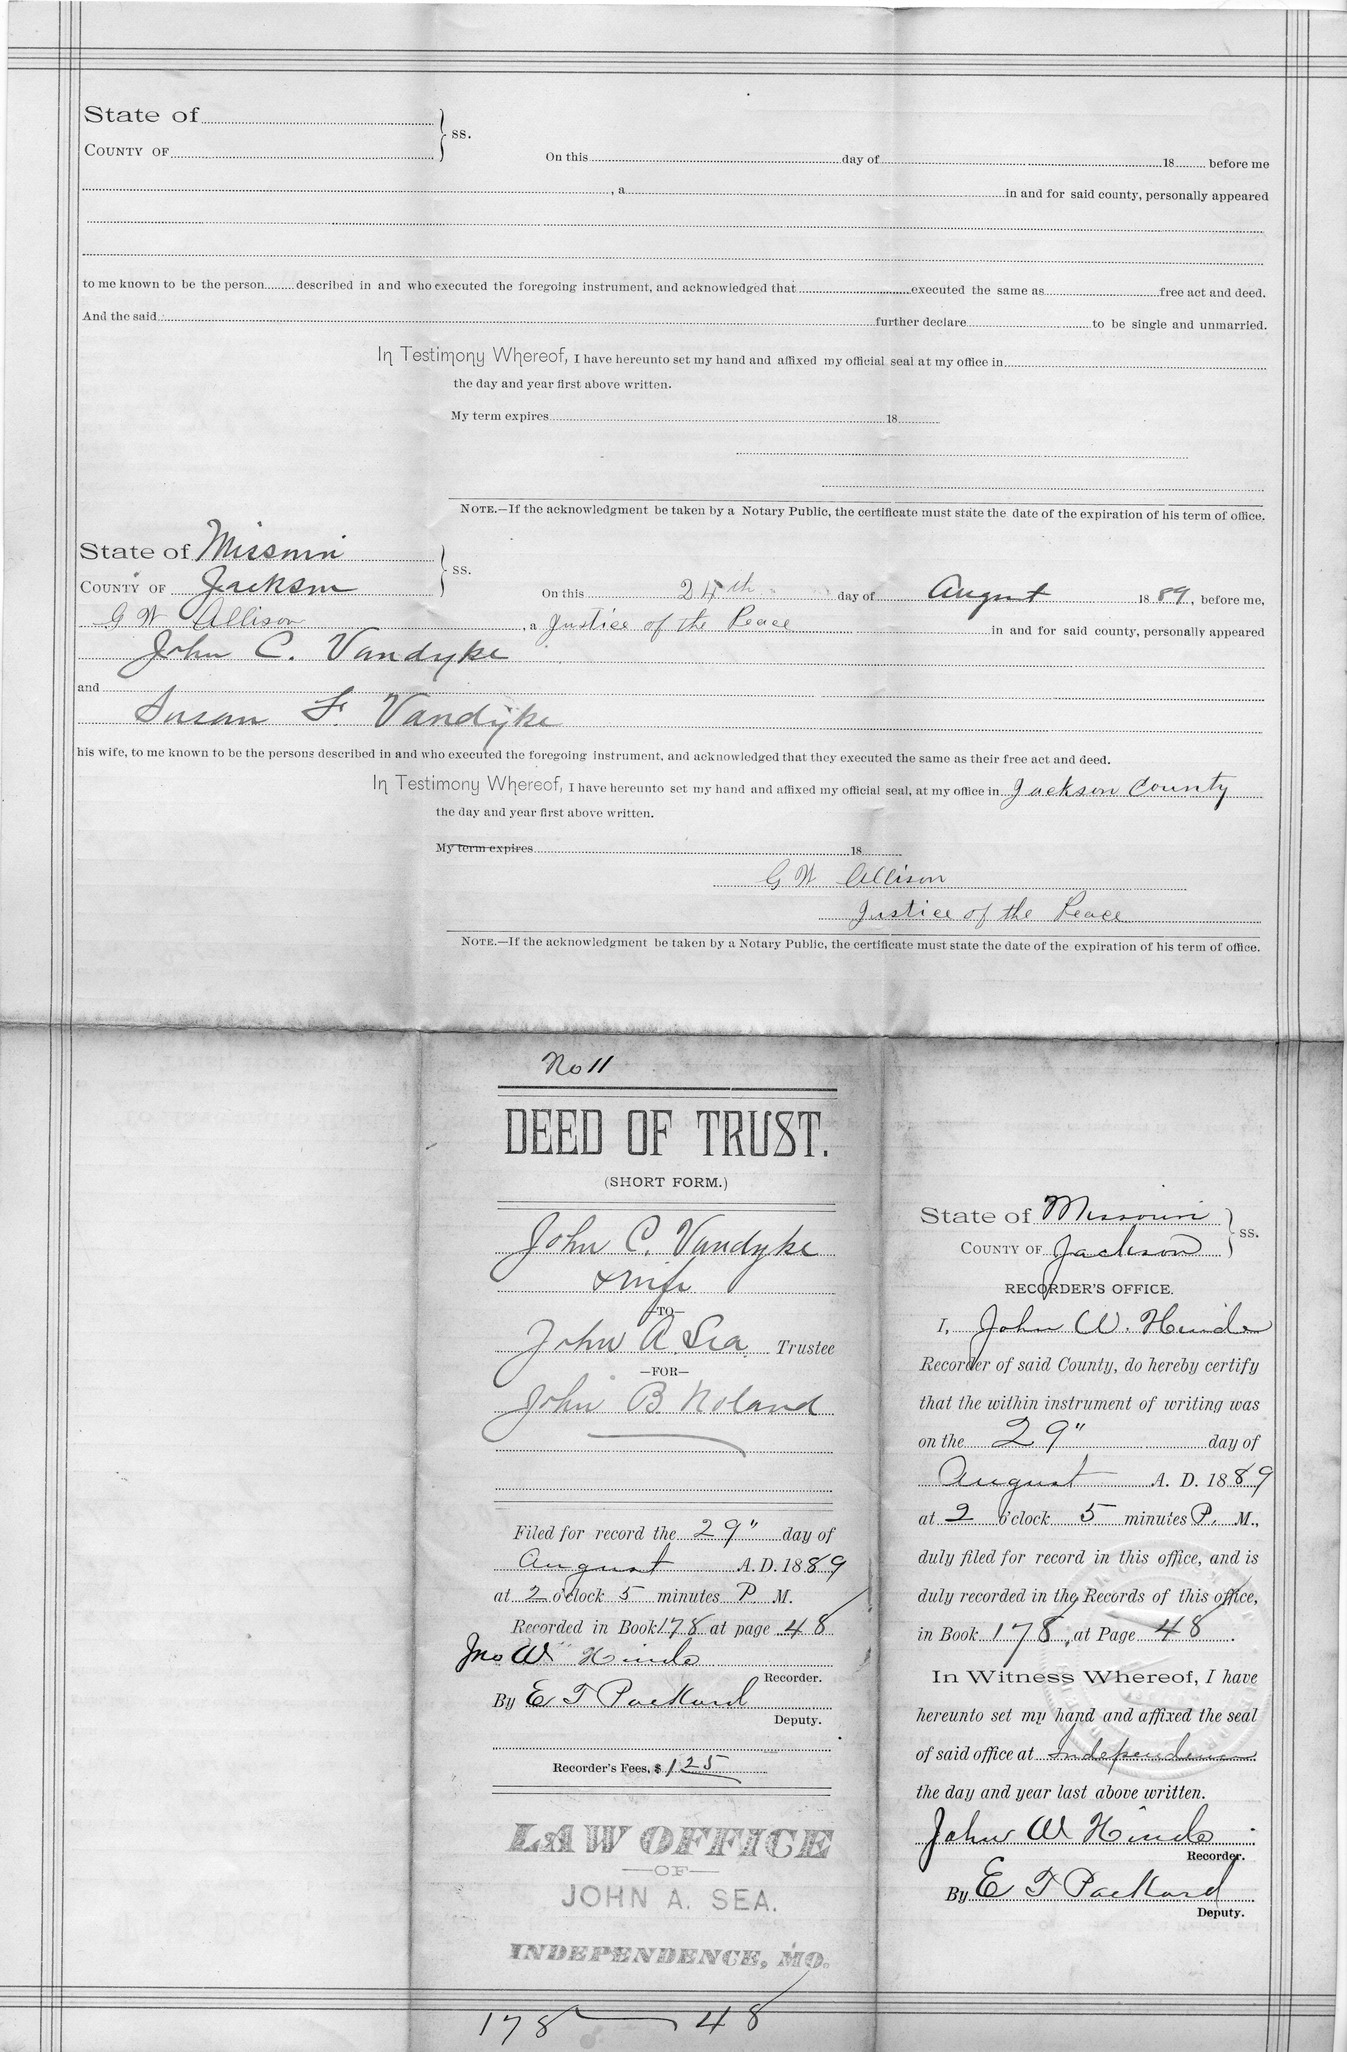 State of
COUNTY OF
} ss.
On this day of 18 before me
, a in and for said county, personally appeared
to me known to be the person described in and who executed the foregoing instrument, and acknowledged that executed the same as free act and deed.
And the said further declare to be single and unmarried.
In Testimony Whereof, I have hereunto set my hand and affixed my official seal at my office in
the day and year first above written.
My term expires 18
NOTE.—If the acknowledgment be taken by a Notary Public, the certificate must state the date of the expiration of his term of office.
State of Missouri
COUNTY OF Jackson
} ss.
On this 24th day of August 1889, before me,
G W Allison, a Justice of the Peace in and for said county, personally appeared
John C. Vandyke
and
Susan F. Vandyke
his wife, to me known to be the persons described in and who executed the foregoing instrument, and acknowledged that they executed the same as their free act and deed.
In Testimony Whereof, I have hereunto set my hand and affixed my official seal, at my office in Jackson County
the day and year first above written.
My term expires 18
G W Allison
Justice of the Peace
NOTE.—If the acknowledgment be taken by a Notary Public, the certificate must state the date of the expiration of his term of office.
No 11
DEED OF TRUST.
(SHORT FORM.)
John C. Vandyke
& wife
—TO—
John A. Sea Trustee
—FOR—
John B. Noland
Filed for record the 29" day of
August A. D. 1889
at 2 o'clock 5 minutes P. M.
Recorded in Book 178 at page 48
Jno W Hinde
Recorder.
By E T Packard
Deputy.
Recorder's Fees, $ 1 25
LAW OFFICE
—OF—
JOHN A. SEA.
INDEPENDENCE, MO.
178 — 48
State of Missouri
COUNTY OF Jackson
} ss.
RECORDER'S OFFICE.
I, John W. Hinde
Recorder of said County, do hereby certify
that the within instrument of writing was
on the 29" day of
August A. D. 1889
at 2 o'clock 5 minutes P. M.,
duly filed for record in this office, and is
duly recorded in the Records of this office,
in Book 178, at Page 48.
In Witness Whereof, I have
hereunto set my hand and affixed the seal
of said office at Independence
the day and year last above written.
John W Hinde
Recorder.
By E T Packard
Deputy.